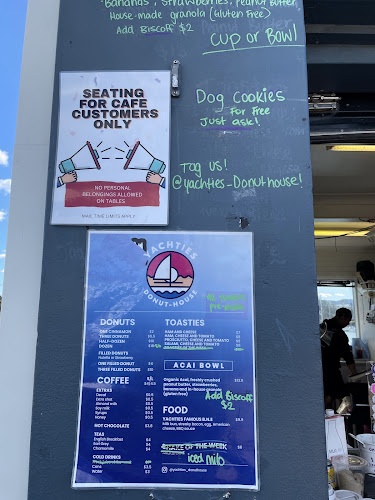 Bananas, Strawberries, Peanut Butter,
House-made granola (Gluten Free)
Add Biscoff $2
Cup or Bowl
SEATING
FOR CAFE
CUSTOMERS
ONLY
NO PERSONAL
BELONGINGS ALLOWED
ON TABLES
MAX. TIME LIMITS APPLY
Dog Cookies
For Free
Just ask!
Tag us!
@yachties_Donuthouse!
YACHTIES
DONUT-HOUSE
DONUTS
ONE CINNAMON
THREE DONUTS
HALF-DOZEN
DOZEN
FILLED DONUTS
Nutella or Strawberry
ONE FILLED DONUT
THREE FILLED DONUTS
COFFEE
EXTRAS
Decaf
Extra shot
Almond milk
Soy milk
Syrups
Honey
HOT CHOCOLATE
TEAS
English Breakfast
Earl Grey
Chamomile
COLD DRINKS
Cans
Water
TOASTIES
HAM AND CHEESE
HAM, CHEESE AND TOMATO
PROSCIUTTO, CHEESE AND TOMATO
SALAMI, CHEESE AND TOMATO
ACAI BOWL
Organic acai, freshly crushed
peanut butter, strawberries,
banana and in-house granola
(gluten free)
Add Biscoff
$2
FOOD
YACHTIES FAMOUS B.N.E
Milk bun, streaky bacon, egg, American
cheese, BBQ sauce
SHAKE OF THE WEEK
iced milo
@yachties_donuthouse